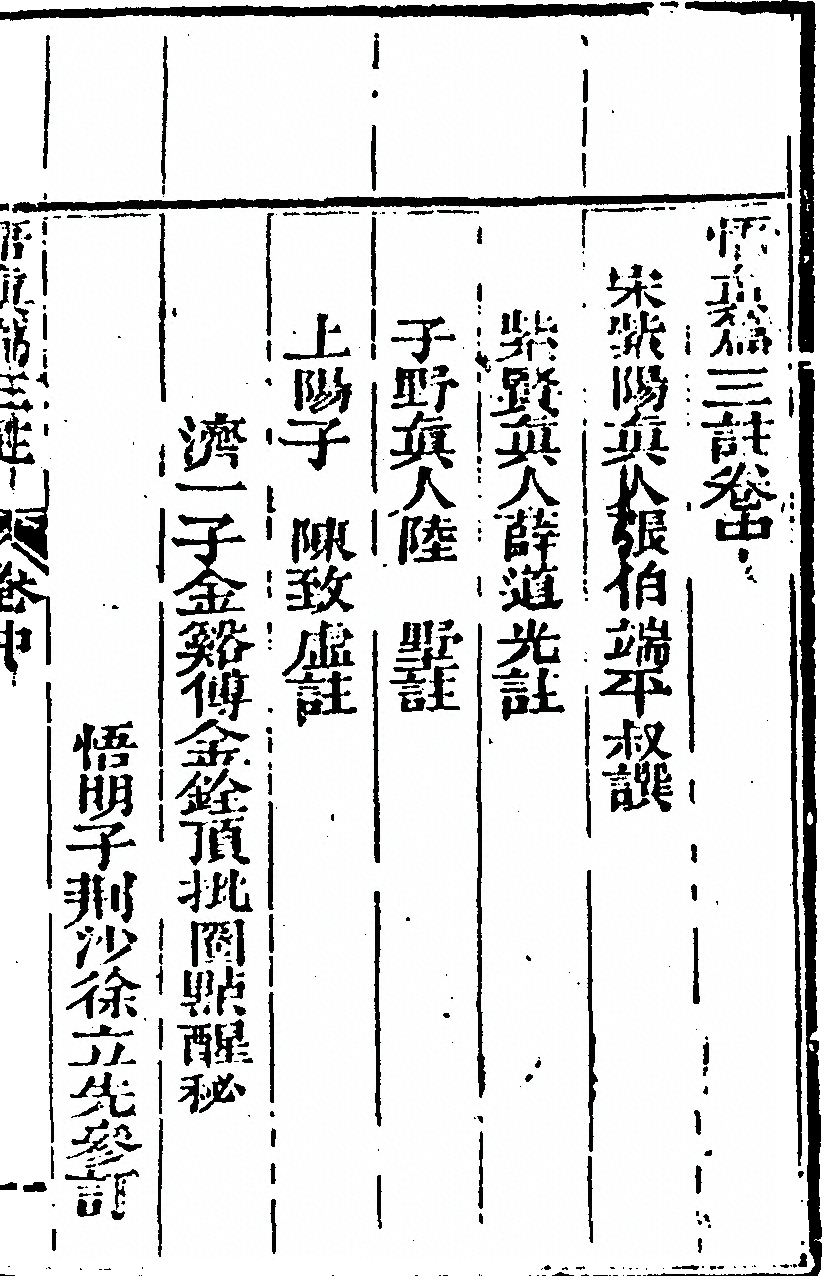 悟真篇三註卷中
宋紫陽真人張伯端平叔譔
紫賢真人薛道光註
子野真人陸　墅註
上陽子　陳致虛註
濟一子金谿傅金銓頂批圈點醒秘
悟明子荆沙徐立先參訂
悟真篇三註 卷中